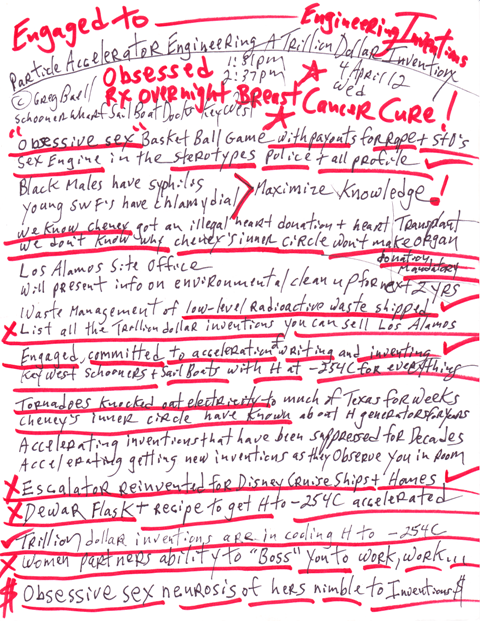 Engaged to Engineering Inventions
Particle Accelerator Engineering A Trillion Dollar Invention
© Greg Buell 1:31pm 4 April 12
Obsessed 2:37pm Wed
Schooner Wharf Sail Boat Dock Key West
Rx overnight Breast Cancer Cure!
"Obsessive sex" Basket Ball Game with payouts for Rope + STD's
Sex Engine in the sterotypes police + all profile
Black Males have syphilos
young SWF's have Chlamydial Maximize Knowledge!
we know cheney got an illegal heart donation + heart Transplant
We don't know why cheney's inner circle won't make organ
donations Mandatory
Los Alamos Site Office
will present info on environmental clean up for next 2 yrs
Waste Management of low-level radioactive waste shipped
X List all the Trillion dollar inventions you can sell Los Alamos
Engaged, committed to acceleration writing and inventing
Key West schooners + Sail Boats with H at -254C for everything
Tornadoes Knocked out electricity to much of Texas for weeks
Cheney's inner circle have known about H generators for years
Accelerating inventions that have been suppressed for Decades
Accelerating getting new inventions as they Observe you in room
X Escalator reinvented for Disney Cruise Ships + Homes
X Dewar Flask + recipe to get H to -254C accelerated
Trillion dollar inventions are in cooling H to -254C
X Women partners ability to "Boss" you to work, work...
$ Obsessive sex neurosis of hers nimble to Inventions $